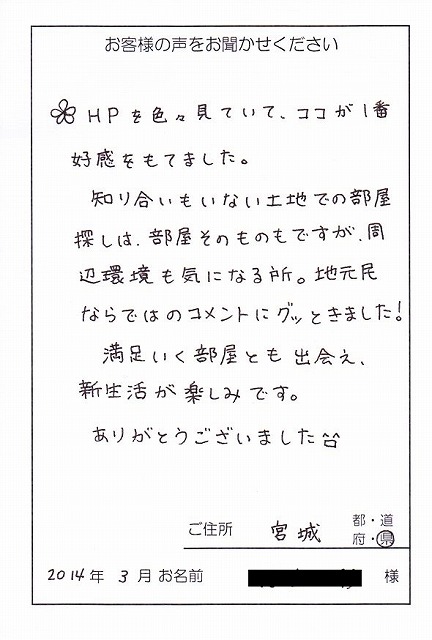 お客様の声をお聞かせください
HPを色々見ていて、ココが1番
好感をもてました。
知り合いもいない土地での部屋
探しは、部屋そのものもですが、周
辺環境も気になる所。地元民
ならではのコメントにグッときました!
満足いく部屋とも出会え、
新生活が楽しみです。
ありがとうございました
ご住所 宮城 都・道
府・県
2014年 3月 お名前 様